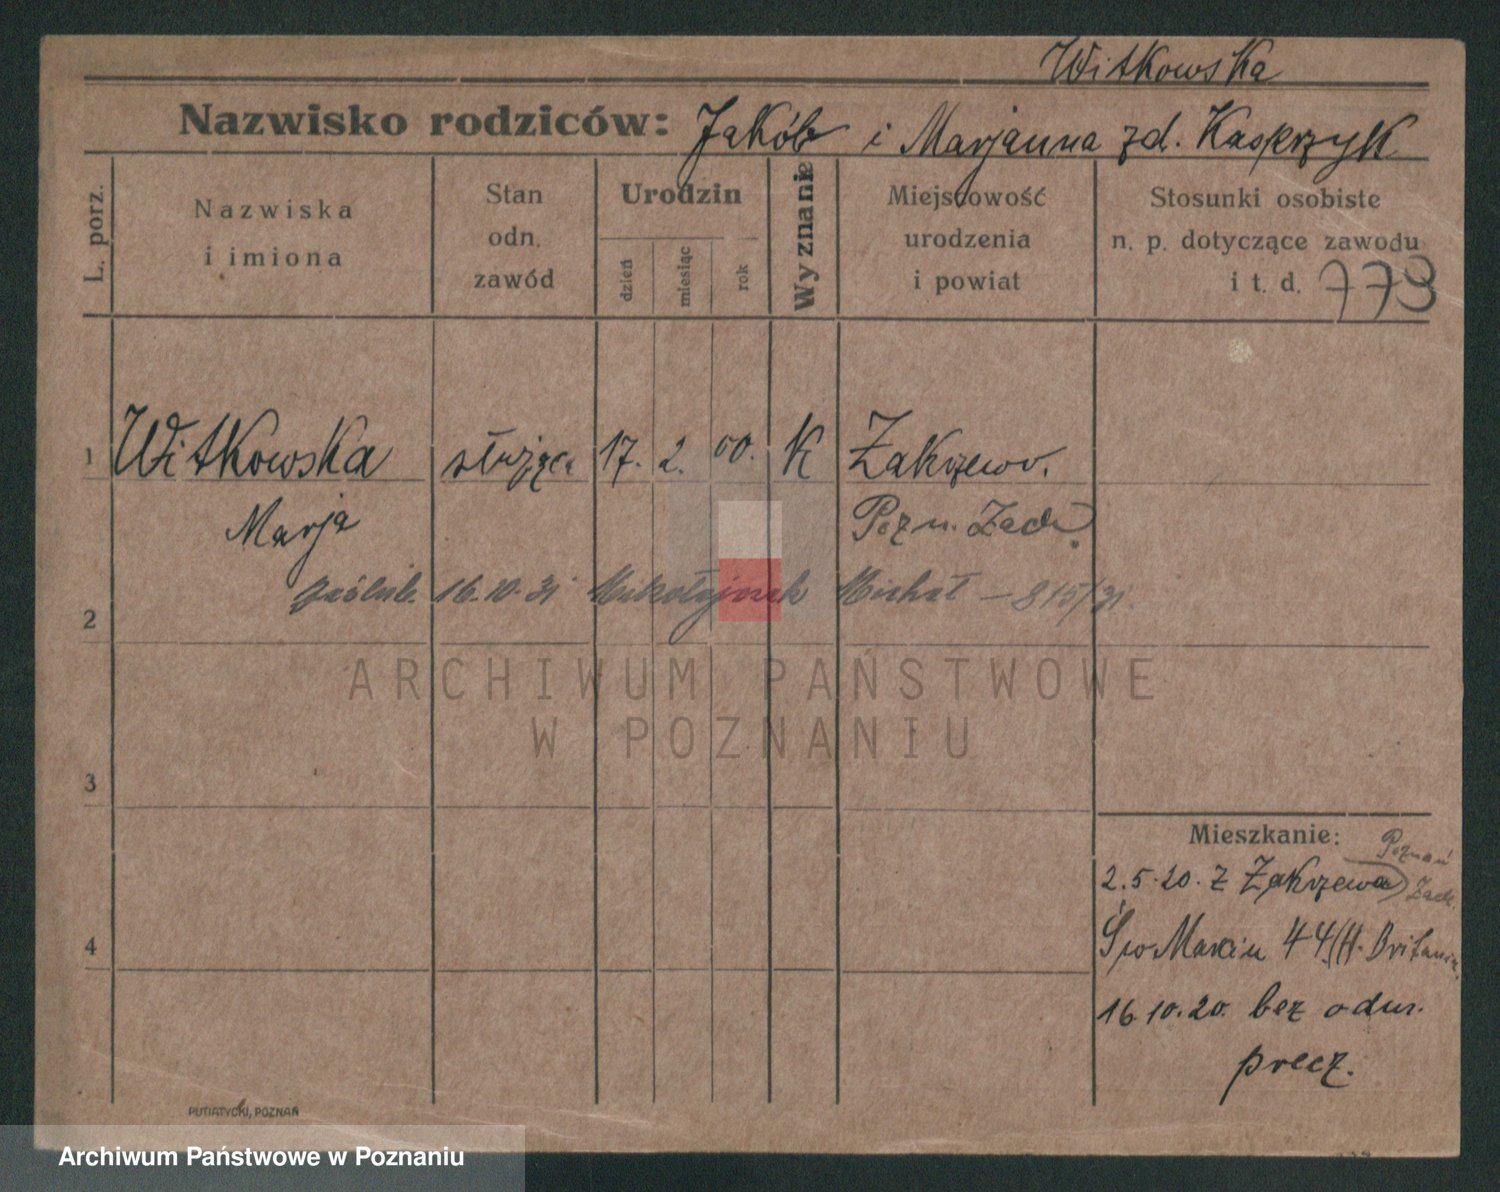 Witkowska
Nazwisko rodziców: Jakób i Marjanna zd. Kasprzyk
L. porz.
Nazwiska
i imiona
Stan
odn.
zawód
Urodzin
dzień
miesiąc
rok
Wyznanie
Miejscowość
urodzenia
i powiat
Stosunki osobiste
n. p. dotyczące zawodu
i t. d. 779
1 Witkowska służąca 17. 2. 00. K Zakrzewo.
Marja Pozn. Zach.
zaślub. 16.10.31 Mikołajczak Michał – 815/31.
2
ARCHIWUM PAŃSTWOWE
W POZNANIU
3
Mieszkanie:
Poznań
2.5.20. z Zakrzewa Zach.
Św Marcin 44 (H. Britania.
4
16.10.20. bez odm.
precz.
PUTIATYCKI, POZNAŃ
Archiwum Państwowe w Poznaniu